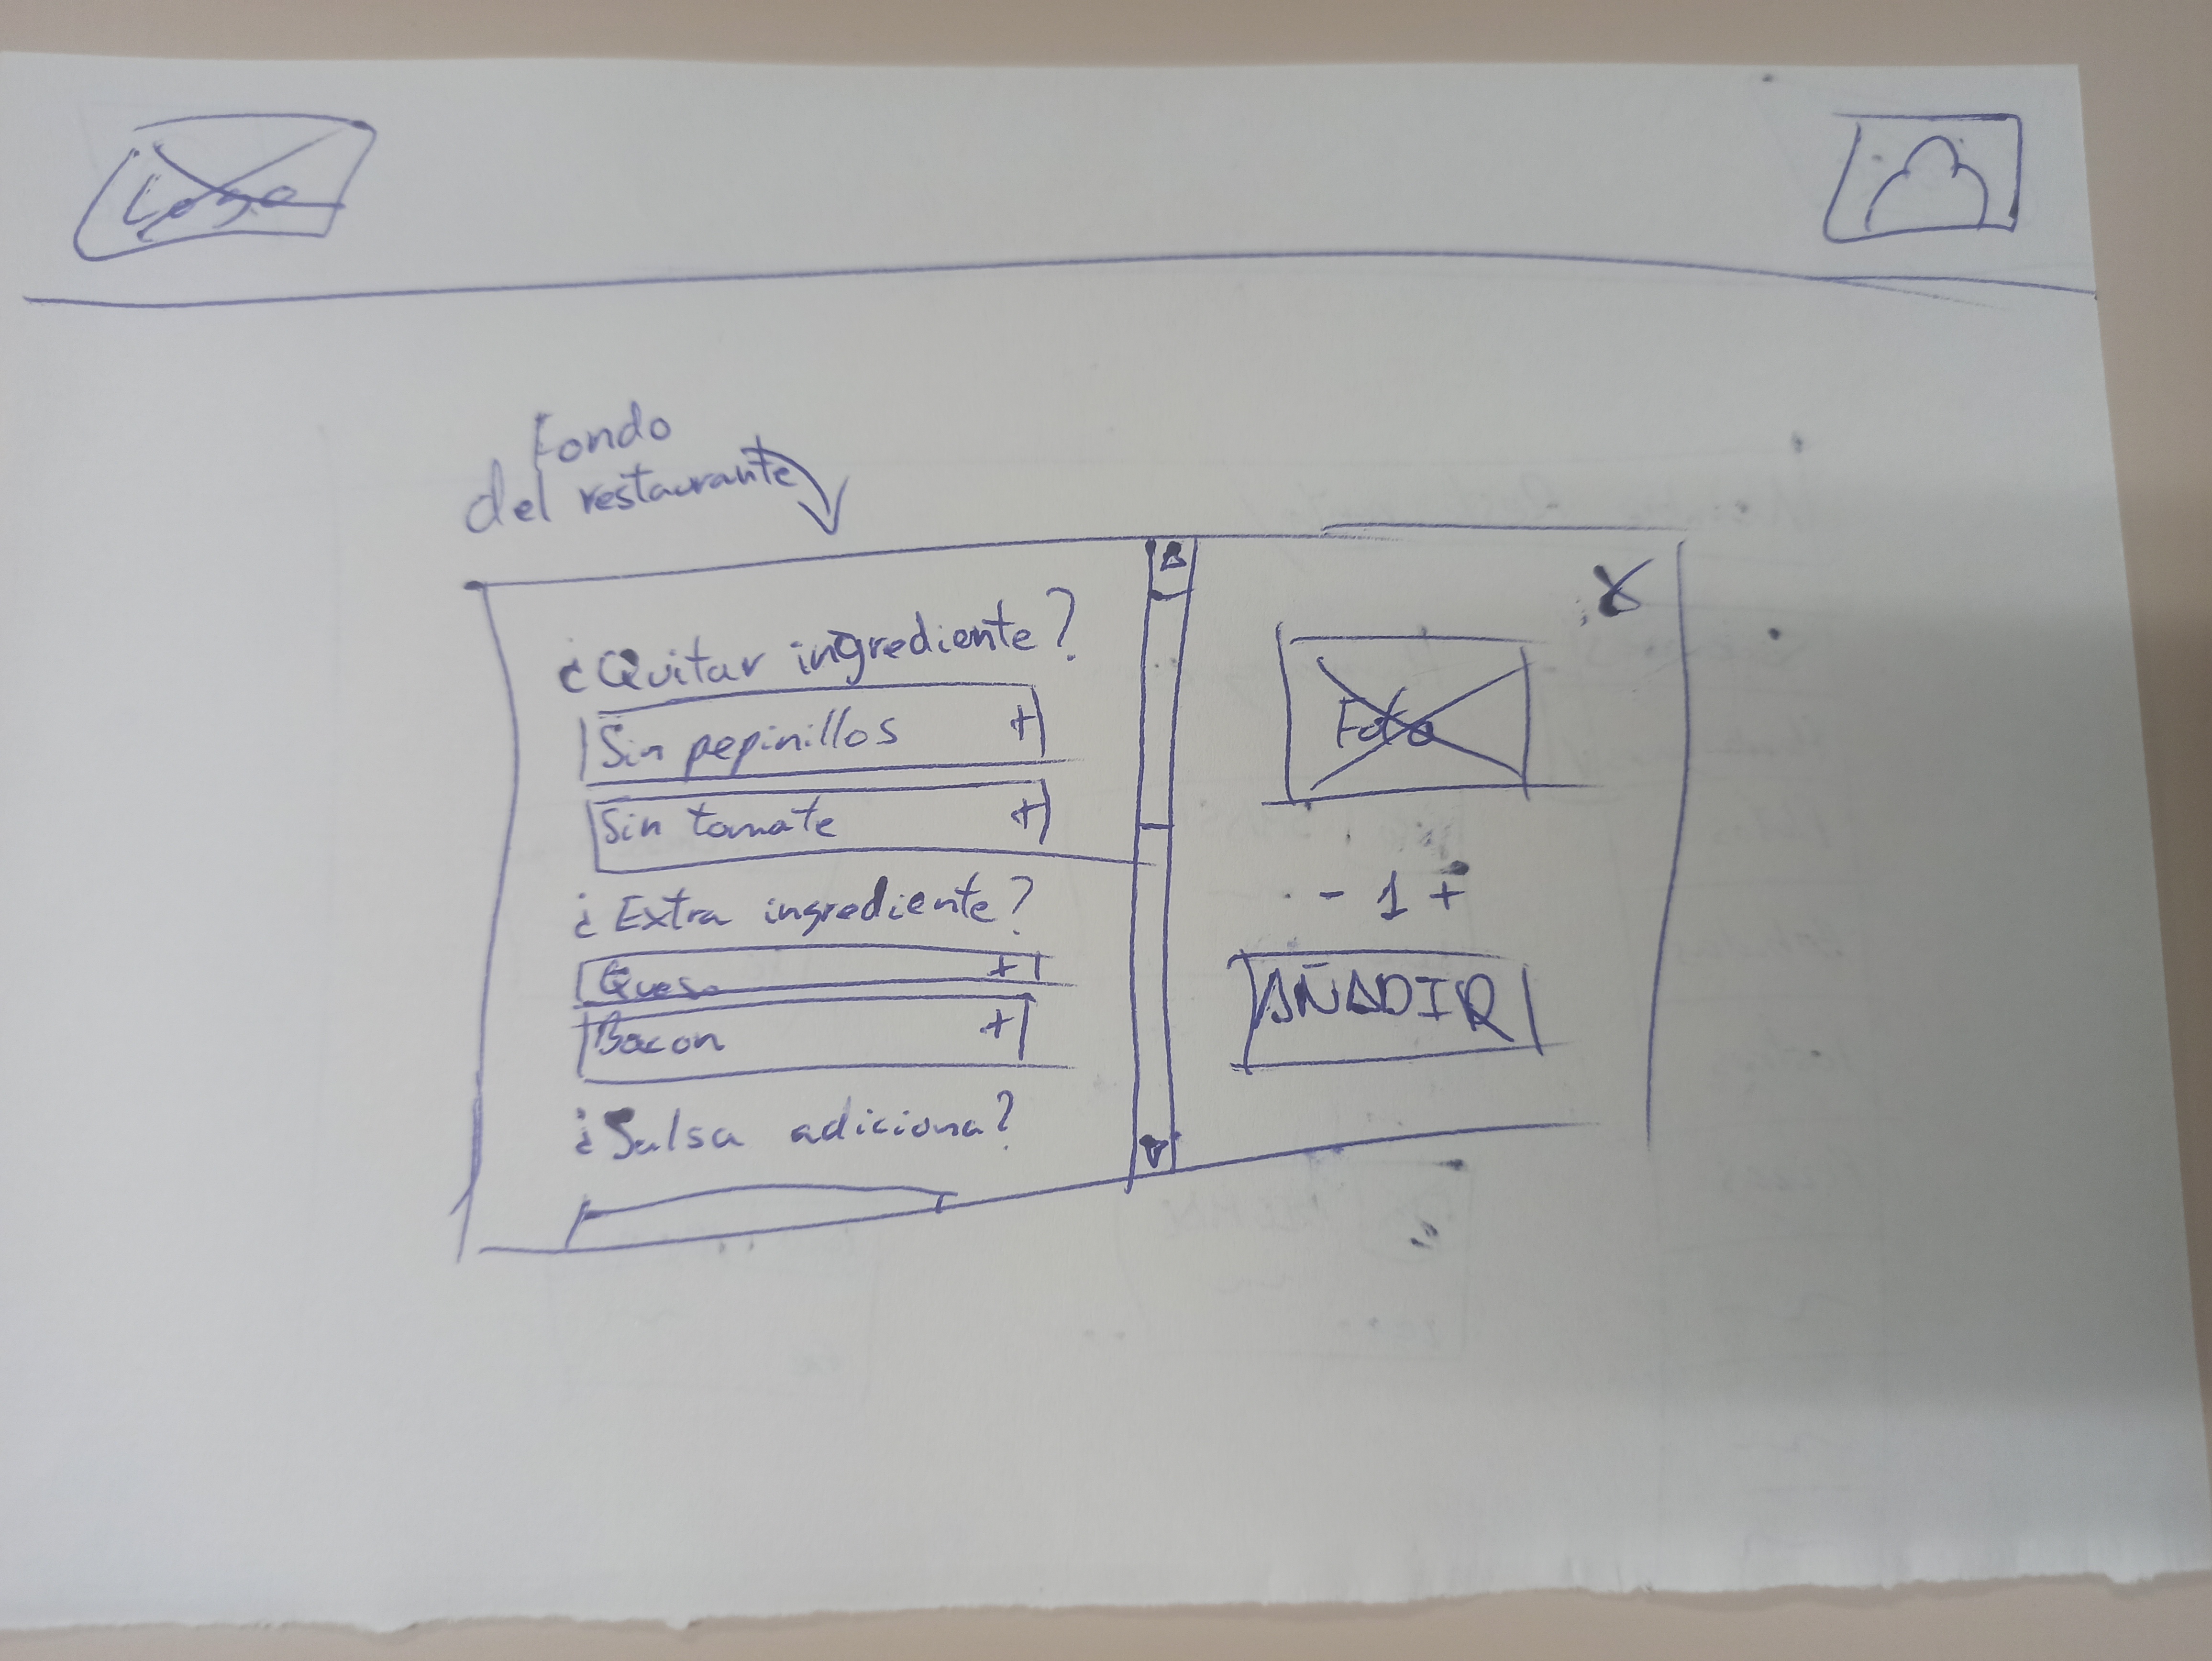 Logo
Fondo
del restaurante
¿Quitar ingrediente?
Sin pepinillos +
Sin tomate +
¿Extra ingrediente?
Queso +
Bacon +
¿Salsa adiciona?
X
Foto
- 1 +
AÑADIR